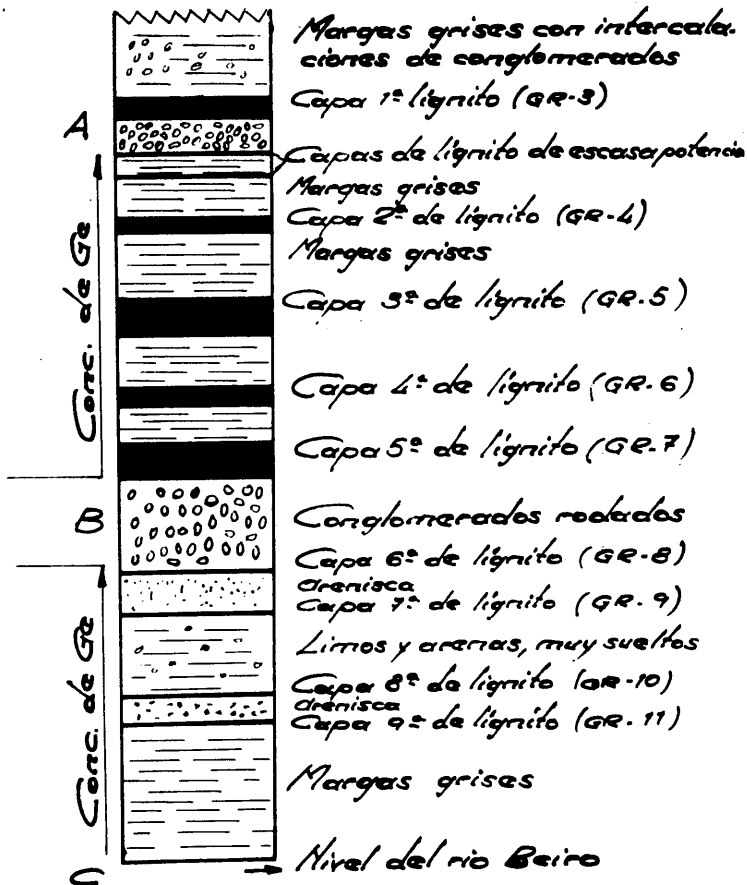 Margas grises con intercala-
ciones de conglomerados
Capa 1ª lignito (GR-3)
A
Capas de lignito de escasa potencia
Margas grises
Capa 2ª de lignito (GR-4)
Margas grises
Capa 3ª de lignito (GR-5)
Conc. de Ge
Capa 4ª de lignito (GR-6)
Capa 5ª de lignito (GR-7)
B
Conglomerados rodados
Capa 6ª de lignito (GR-8)
Arenisca
Capa 7ª de lignito (GR-9)
Limos y arenas, muy sueltos
Conc. de Ge
Capa 8ª de lignito (GR-10)
Arenisca
Capa 9ª de lignito (GR-11)
Margas grises
Nivel del rio Beiro
C